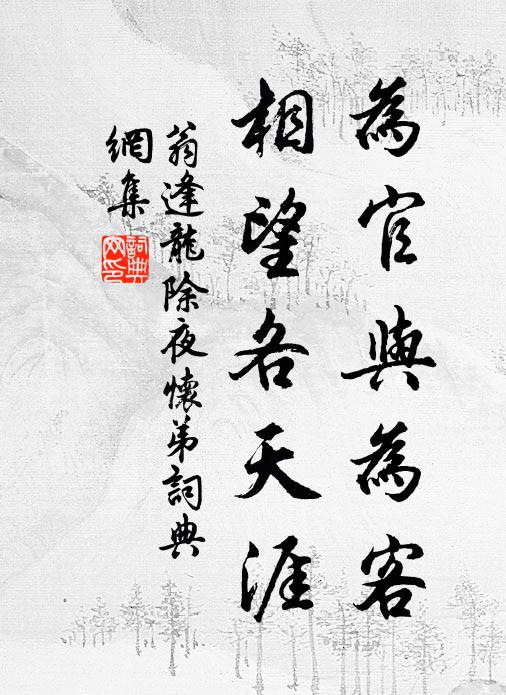 為官與為客
相望各天涯
翁逢龍除夜懷弟詞典
網集
詞典
网印